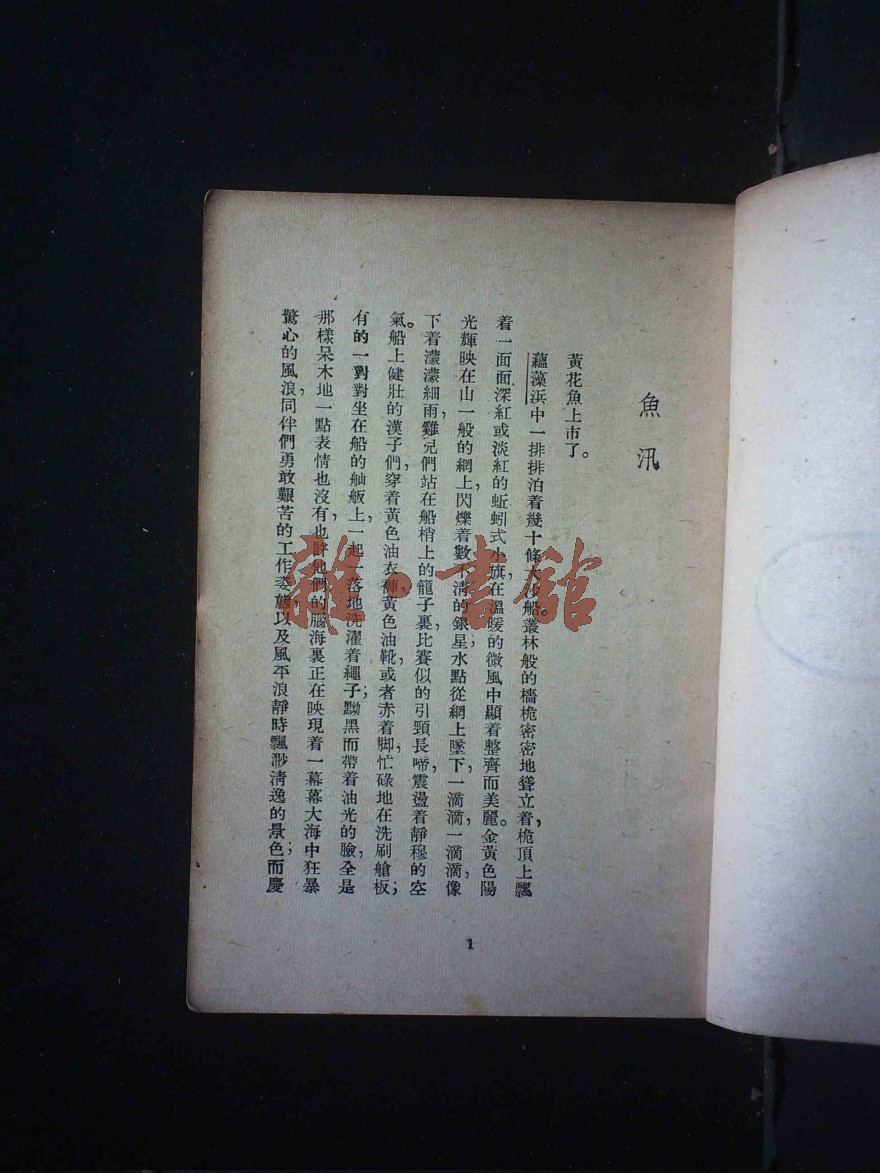 魚汛
黃花魚上市了。
蘊藻浜中一排排泊着幾十條大沙船。叢林般的檣桅密密地聳立着，桅頂上飄
着一面面深紅或淡紅的蚯蚓式小旗，在溫暖的微風中顯着整齊而美麗。金黃色陽
光輝映在山一般的網上，閃爍着數不清的銀星；水點從網上墜下，一滴滴，一滴滴，像
下着濛濛細雨，雞兒們站在船梢上的籠子裏比賽似的引頸長啼，震盪着靜穆的空
氣。船上健壯的漢子們，穿着黃色油衣褲，黃色油靴，或者赤着脚，忙碌地在洗刷艙板；
有的一對對坐在船的舢舨上，一起一落地洗濯着繩子；黝黑而帶着油光的臉，全是
那樣呆木地一點表情也沒有，也許他們的腦海裏正在映現着一幕幕大海中狂暴
驚心的風浪，同伴們勇敢艱苦的工作姿態，以及風平浪靜時飄渺清逸的景色；而慶
1
雜·書館